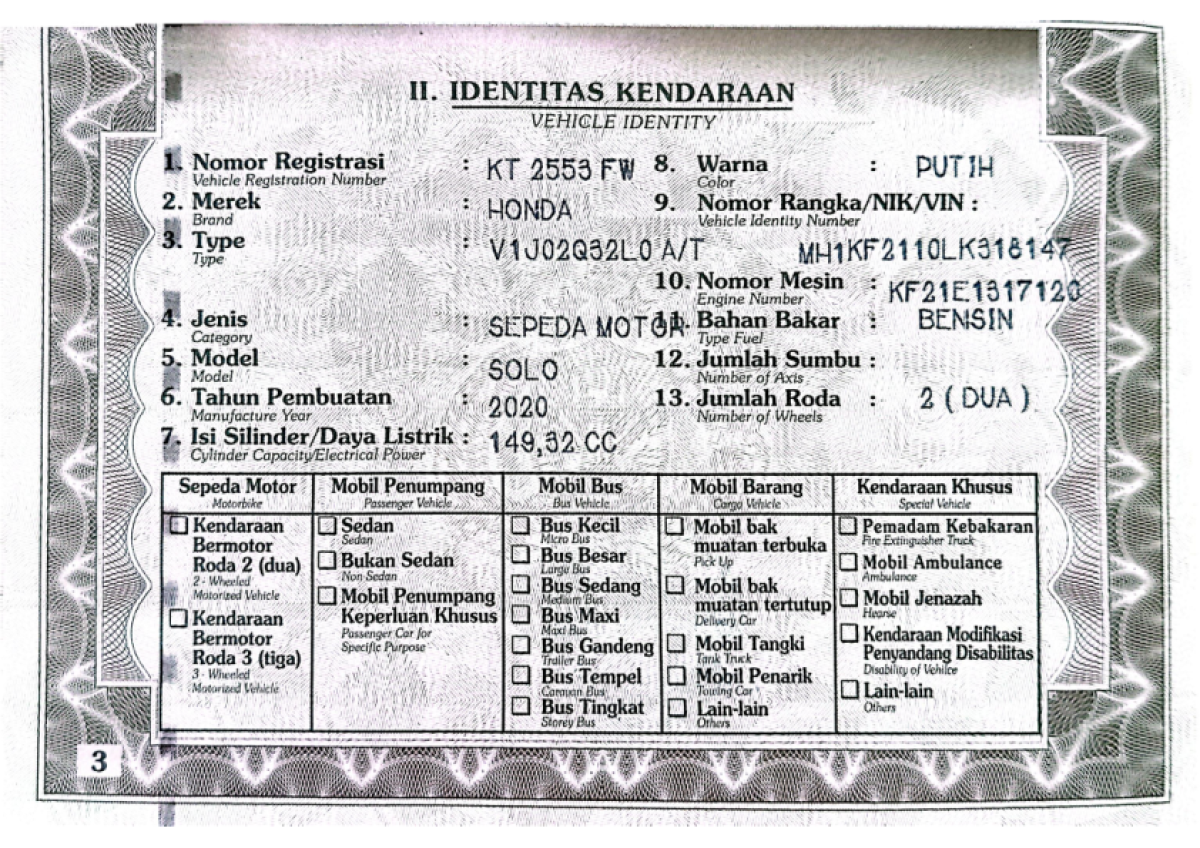 II. IDENTITAS KENDARAAN
VEHICLE IDENTITY
1. Nomor Registrasi : KT 2553 FW
Vehicle Registration Number
2. Merek : HONDA
Brand
3. Type : V1J02Q32L0 A/T
Type
4. Jenis : SEPEDA MOTOR
Category
5. Model : SOLO
Model
6. Tahun Pembuatan : 2020
Manufacture Year
7. Isi Silinder/Daya Listrik : 149,32 CC
Cylinder Capacity/Electrical Power
8. Warna : PUTIH
Color
9. Nomor Rangka/NIK/VIN :
Vehicle Identity Number
MH1KF2110LK318147
10. Nomor Mesin : KF21E1317120
Engine Number
11. Bahan Bakar : BENSIN
Type Fuel
12. Jumlah Sumbu :
Number of Axis
13. Jumlah Roda : 2 ( DUA )
Number of Wheels
Sepeda Motor
Motorbike
Kendaraan
Bermotor
Roda 2 (dua)
2 - Wheeled
Motorized Vehicle
Kendaraan
Bermotor
Roda 3 (tiga)
3 - Wheeled
Motorized Vehicle
Mobil Penumpang
Passenger Vehicle
Sedan
Sedan
Bukan Sedan
Non Sedan
Mobil Penumpang
Keperluan Khusus
Passenger Car for
Specific Purpose
Mobil Bus
Bus Vehicle
Bus Kecil
Micro Bus
Bus Besar
Large Bus
Bus Sedang
Medium Bus
Bus Maxi
Maxi Bus
Bus Gandeng
Trailer Bus
Bus Tempel
Caravan Bus
Bus Tingkat
Storey Bus
Mobil Barang
Cargo Vehicle
Mobil bak
muatan terbuka
Pick Up
Mobil bak
muatan tertutup
Delivery Car
Mobil Tangki
Tank Truck
Mobil Penarik
Towing Car
Lain-lain
Others
Kendaraan Khusus
Special Vehicle
Pemadam Kebakaran
Fire Extinguisher Truck
Mobil Ambulance
Ambulance
Mobil Jenazah
Hearse
Kendaraan Modifikasi
Penyandang Disabilitas
Disability of Vehilce
Lain-lain
Others
3